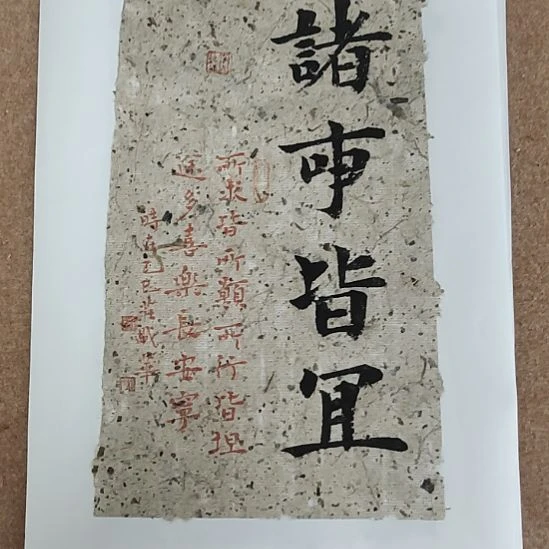 諸事皆宜
所求皆所願所行皆坦
途多喜樂長安寧
時在乙巳